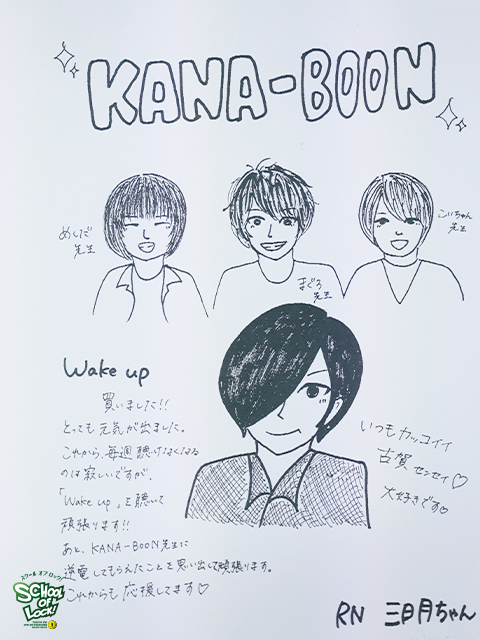 KANA-BOON
めしだ
先生
まぐろ
先生
こいちゃん
先生
Wake up
買いました!!
とっても元気が出ました。
これから、毎週聴けなくなる
のは寂しいですが、
「Wake up」を聴いて
頑張ります!!
あと、KANA-BOON先生に
逆電してもらえたことを思い出して頑張ります。
これからも応援してます♡
いつもカッコイイ
古賀センセイ♡
大好きです♡
スクールオブロック!
SCHOOL
OF
LOCK!
RN 三日月ちゃん